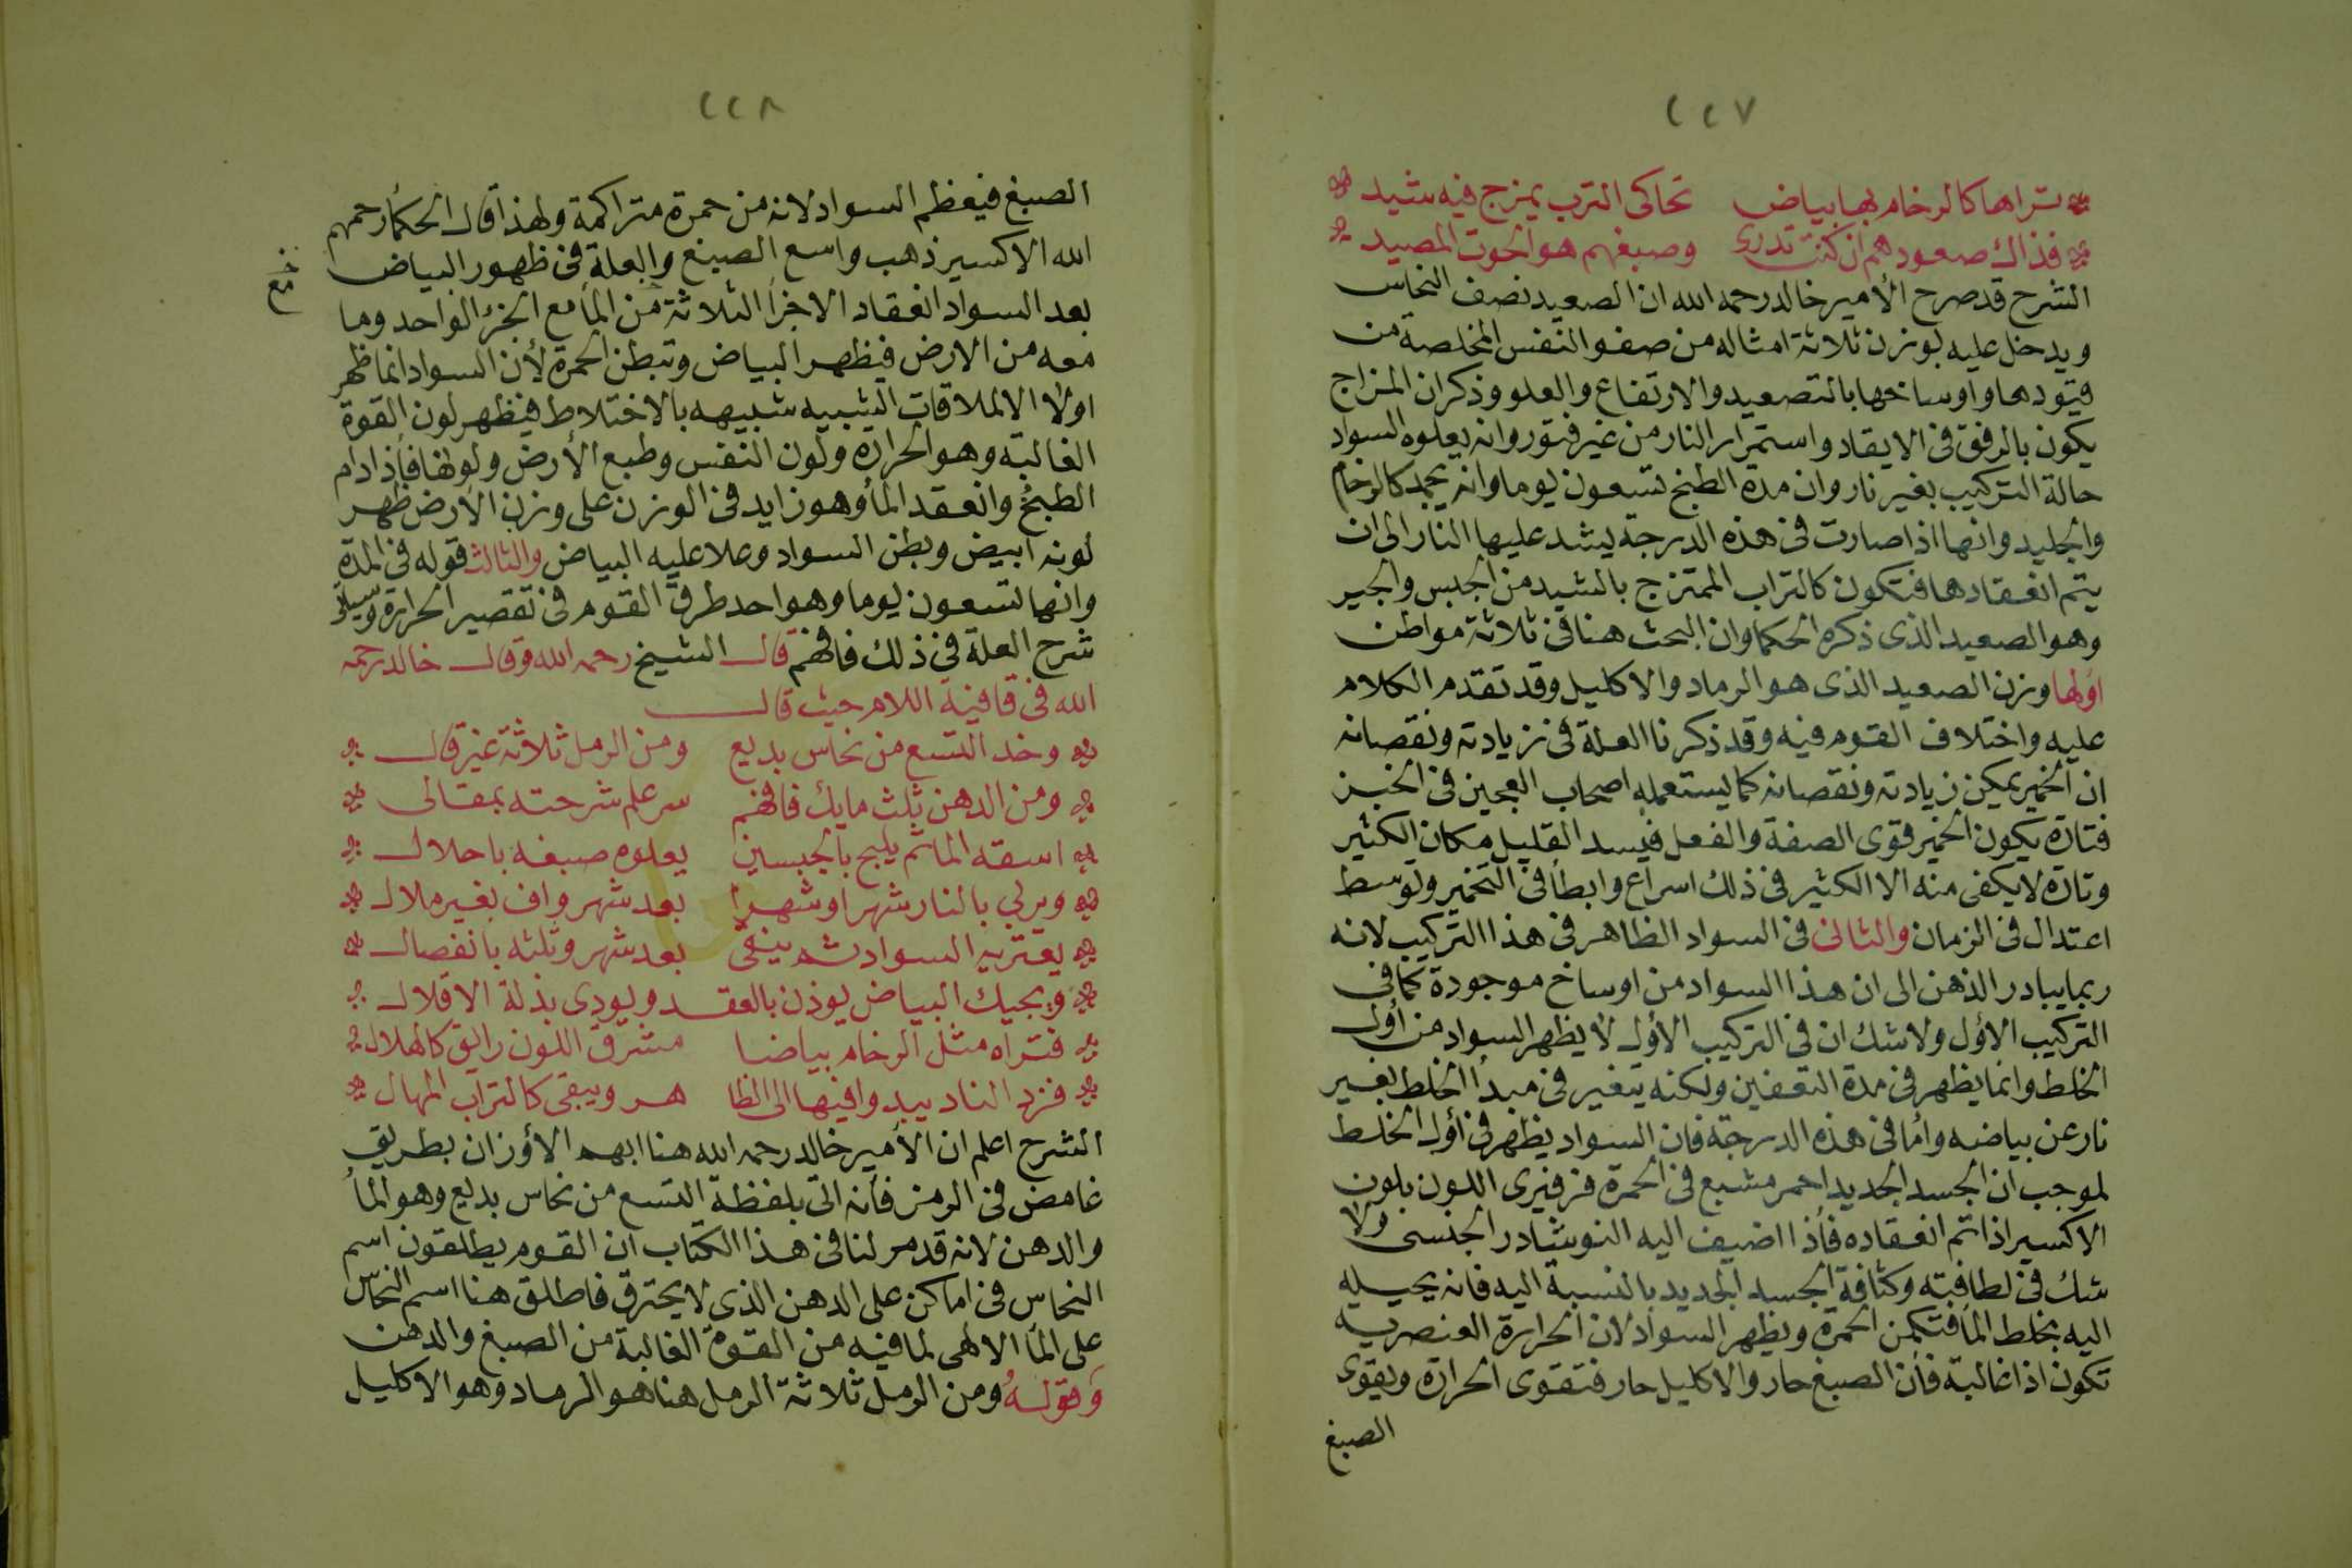 ٢٢٧
تراها كالرخام بها بياض تحاكى الترب يمزج فيه شيد
فذاك صعودهم ان كنت تدرى وصبغهم هو الحوت المصيد
الشرح قد صرح الأمير خالد رحمه الله ان الصعيد نصف النحاس
ويدخل عليه لوزن ثلاثة امثاله من صفو النفس المخلصة من
قيودها واوساخها بالتصعيد والارتفاع والعلو وذكر ان المزاج
يكون بالرفق فى الايقاد واستمرار النار من غير فتور وانه يعلوه السواد
حالة التركيب بغير نار وان مدة الطبخ تسعون يوما وانه يجمد كالرخام
والجليد وانها اذا صارت فى هذه الدرجة يشد عليها النار الى ان
يتم انعقادها فتكون كالتراب الممتزج بالشيد من الجبس والجير
وهو الصعيد الذى ذكره الحكما وان البحث هنا فى ثلاثة مواطن
اولها وزن الصعيد الذى هو الرماد والاكليل وقد تقدم الكلام
عليه واختلاف القوم فيه وقد ذكرنا العلة فى زيادته ونقصانه
ان الخمير يمكن زيادته ونقصانه كما يستعمله اصحاب العجين فى الخبز
فتارة يكون الخمير قوى الصفة والفعل فيسد القليل مكان الكثير
وتارة لا يكفى منه الا الكثير فى ذلك اسراع وابطا فى التخمير وتوسط
اعتدال فى الزمان والثانى فى السواد الظاهر فى هذا التركيب لانه
ربما يبادر الذهن الى ان هذا السواد من اوساخ موجودة كما فى
التركيب الأول ولا شك ان فى التركيب الأول لا يظهر السواد من أول
الخلط وانما يظهر فى مدة التعفين ولكنه يتغير فى مبدأ الخلط بغير
نار عن بياضه وأما فى هذه الدرجة فان السواد يظهر فى أول الخلط
لموجب ان الجسد الجديد احمر مشبع فى الحمرة فرفيرى اللون بلون
الاكسير اذا تم انعقاده فأذا اضيف اليه النوشادر الجنسى ولا
شك فى لطافته وكثافة الجسد الجديد بالنسبة اليه فانه يحيله
اليه بخلط الما فتكمن الحمرة ويظهر السواد لان الحرارة العنصريه
تكون اذا غالبة فأن الصبغ حار والاكليل حار فتقوى الحرارة ويقوى
الصبغ
٢٢٨
الصبغ فيعظم السواد لانه من حمرة متراكمة ولهذا قال الحكما رحمهم
الله الاكسير ذهب واسع الصبغ والعلة فى ظهور البياض
بعد السواد انعقاد الاجزأ الثلاثة من المأ مع الجزء الواحد وما
معه من الارض فيظهر البياض وتبطن الحمرة لأن السواد انما ظهر
اولا الالملاقات الشبيه شبيهه بالاختلاط فيظهر لون القوة
الغالبة وهو الحرارة ولون النفس وطبع الأرض ولونها فأذا دام
الطبخ وانعقد المأ وهو زايد فى الوزن على وزن الأرض ظهر
لونه ابيض وبطن السواد وعلا عليه البياض والثالث قوله فى المدة
وانها تسعون يوما وهو احد طرق القوم فى تقصير الحرارة وسيأتى
شرح العلة فى ذلك فافهم قال الشيخ رحمه الله وقال خالد رحمه
الله فى قافية اللام حيث قال
وخد التسع من نحاس بديع ومن الرمل ثلاثة غير قال
ومن الدهن ثلث مايك فافهم سر علم شرحته بمقالى
اسقه الما ثم يلبج بالجبسين يعلوه صبغه باحلال
وبربي بالنار شهرا وشهرا بعد شهر واف بغير ملال
يعتريه السواد ثم ينقى بعد شهر وثلثه بانفصال
ويجيك البياض يوذن بالعقد ويودى بذلة الاقلال
فتراه مثل الرخام بياضا مشرق اللون رايق كالهلال
فزد النار يبد وافيها الى الظا هر ويبقى كالتراب المهال
الشرح اعلم ان الأمير خالد رحمه الله هنا ابهم الأوزان بطريق
غامض فى الرمز فأنه اتى بلفظة التسع من نحاس بديع وهو المأ
والدهن لانه قد مر لنا فى هذا الكتاب ان القوم يطلقون اسم
النحاس فى اماكن على الدهن الذى لا يحترق فاطلق هنا اسم النحاس
على المأ الالهى لما فيه من القوة الغالبة من الصبغ والدهن
وقوله ومن الرمل ثلاثة الرمل هنا هو الرماد وهو الاكليل